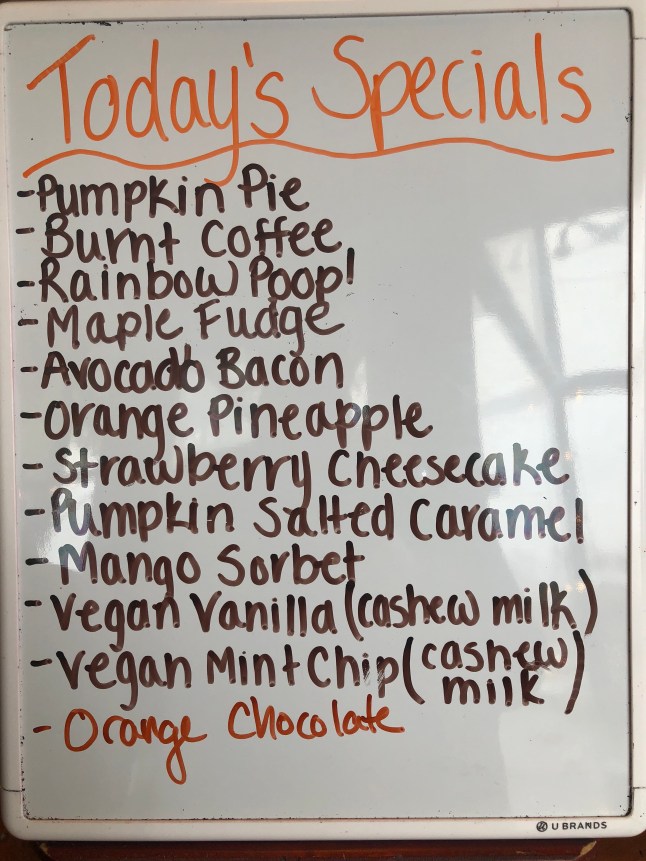 Today's Specials
- Pumpkin Pie
- Burnt Coffee
- Rainbow Poop!
- Maple Fudge
- Avocado Bacon
- Orange Pineapple
- Strawberry Cheesecake
- Pumpkin Salted Caramel
- Mango Sorbet
- Vegan Vanilla (cashew milk)
- Vegan Mint Chip (cashew
milk)
- Orange Chocolate
U BRANDS